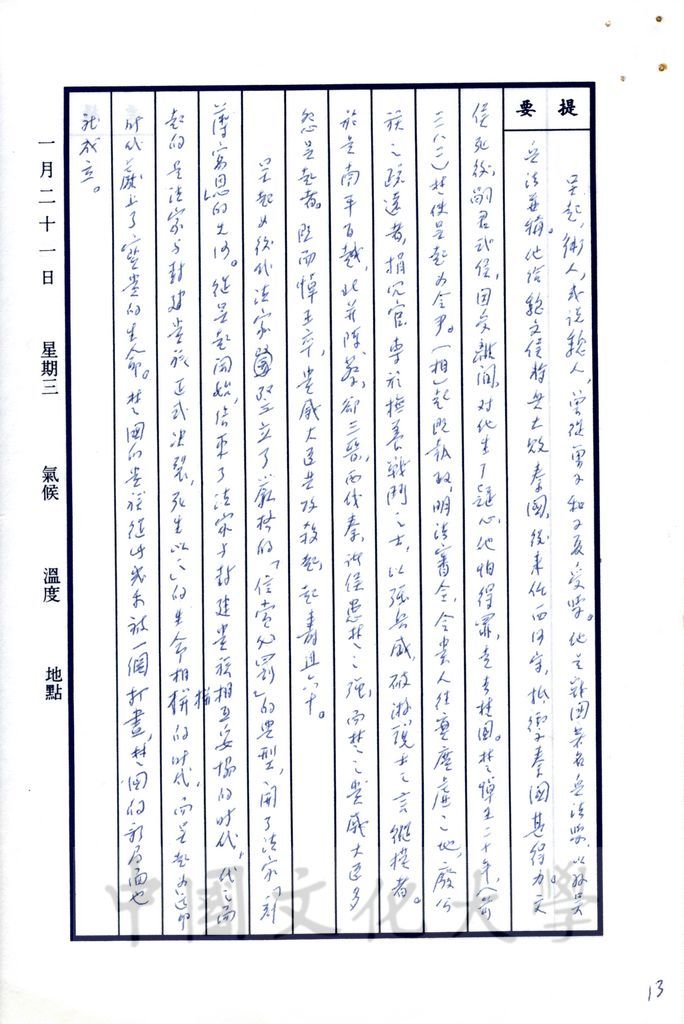 提要
吳起，衛人，或說魏人，曾從曾子和子夏受學。他是戰國著名兵法學，以孫吳
兵法並稱。他給魏文侯將兵大敗秦國，後來作西河守，抵禦秦國甚得力。文
侯死後，嗣君武侯，因受離間，對他生了疑心，他怕得罪，走去楚國。楚悼王二十年，（前
三八二）楚使吳起為令尹。（相）起既執政，明法審令，令貴人往實廣虛之地，廢公
族之疏遠者，捐冗官，專於撫養戰鬥之士，以強兵威，破游說士之言縱橫者。
於是南平百越，北并陳蔡，卻三晉，西伐秦，諸侯患楚之強，而楚之貴戚大臣多
怨吳起者。既而悼王卒，貴戚大臣共攻殺起，起壽且六十。
吳起為後代法家豎立了嚴格的「信賞必罰」的典型，開了法家「刻
薄寡恩」的先河。從吳起開始，結束了法家與封建貴族相互妥協的時代，代之而
起的是法家與封建貴族正式決裂，死生以之的生命相搏的時代，而吳起為這個
時代獻上了寶貴的生命。楚國的貴族從此幾乎被一個打盡，楚國的新局面也
就成立。
一月二十一日 星期三 氣候 溫度 地點
中國文化大學
13